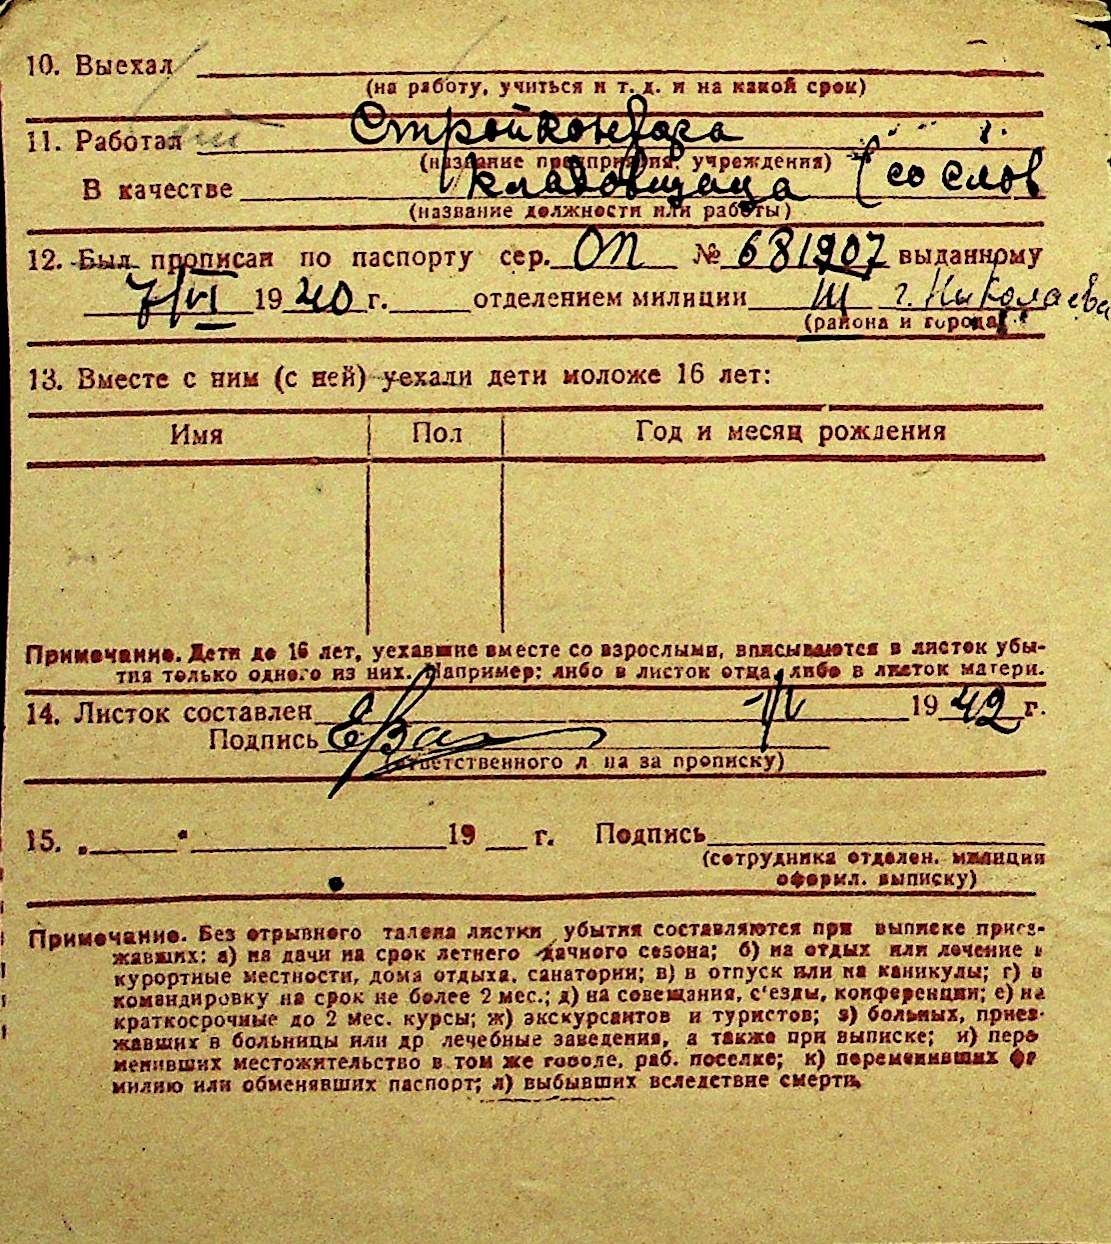 10. Выехал
(на работу, учиться и т. д. и на какой срок)
11. Работал Стройконтора
(название предприятия, учреждения)
В качестве кладовщица (со слов
(название должности или работы)
12. Был прописан по паспорту сер. ОП № 681907 выданному
7/VI 1940 г. отделением милиции III г. Николаева
(района и города)
13. Вместе с ним (с ней) уехали дети моложе 16 лет:
Имя Пол Год и месяц рождения
Примечание. Дети до 16 лет, уехавшие вместе со взрослыми, вписываются в листок убы-
тия только одного из них. Например: либо в листок отца, либо в листок матери.
14. Листок составлен 1942 г.
Подпись
(ответственного л ца за прописку)
15. „ “ 19 г. Подпись
(сотрудника отделен. милиции
оформл. выписку)
Примечание. Без отрывного талена листки убытия составляются при выписке приез-
жавших: а) на дачи на срок летнего дачного сезона; б) на отдых или лечение в
курортные местности, дома отдыха, санатории; в) в отпуск или на каникулы; г) в
командировку на срок не более 2 мес.; д) на совещания, с'езды, конференции; е) на
краткосрочные до 2 мес. курсы; ж) экскурсантов и туристов; з) больных, приез-
жавших в больницы или др лечебные заведения, а также при выписке; и) пере
менивших местожительство в том же городе, раб. поселке; к) переменивших фа
милию или обменявших паспорт; л) выбывших вследствие смерти.